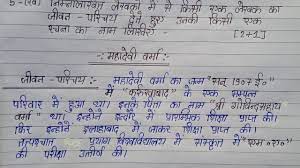 5-(ख) निम्नलिखित लेखकों में से किसी एक लेखक का
जीवन - परिचय देते हुए उनकी किसी एक
रचना का नाम लिखिये।
[2+1]
-: महादेवी वर्मा :-
जीवन - परिचय :- महादेवी वर्मा का जन्म "सन् 1907 ई०"
में "फर्रुखाबाद" के एक सम्पन्न
परिवार में हुआ था। इनके पिता का नाम "श्री गोविन्दसहाय
वर्मा" था। इन्होंने इन्दौर में प्रारम्भिक शिक्षा प्राप्त की।
फिर इन्होंने इलाहाबाद में जाकर शिक्षा प्राप्त की।
तत्पश्चात् प्रयाग विश्वविद्यालय में संस्कृत में "एम०ए०"
की परीक्षा उत्तीर्ण की।